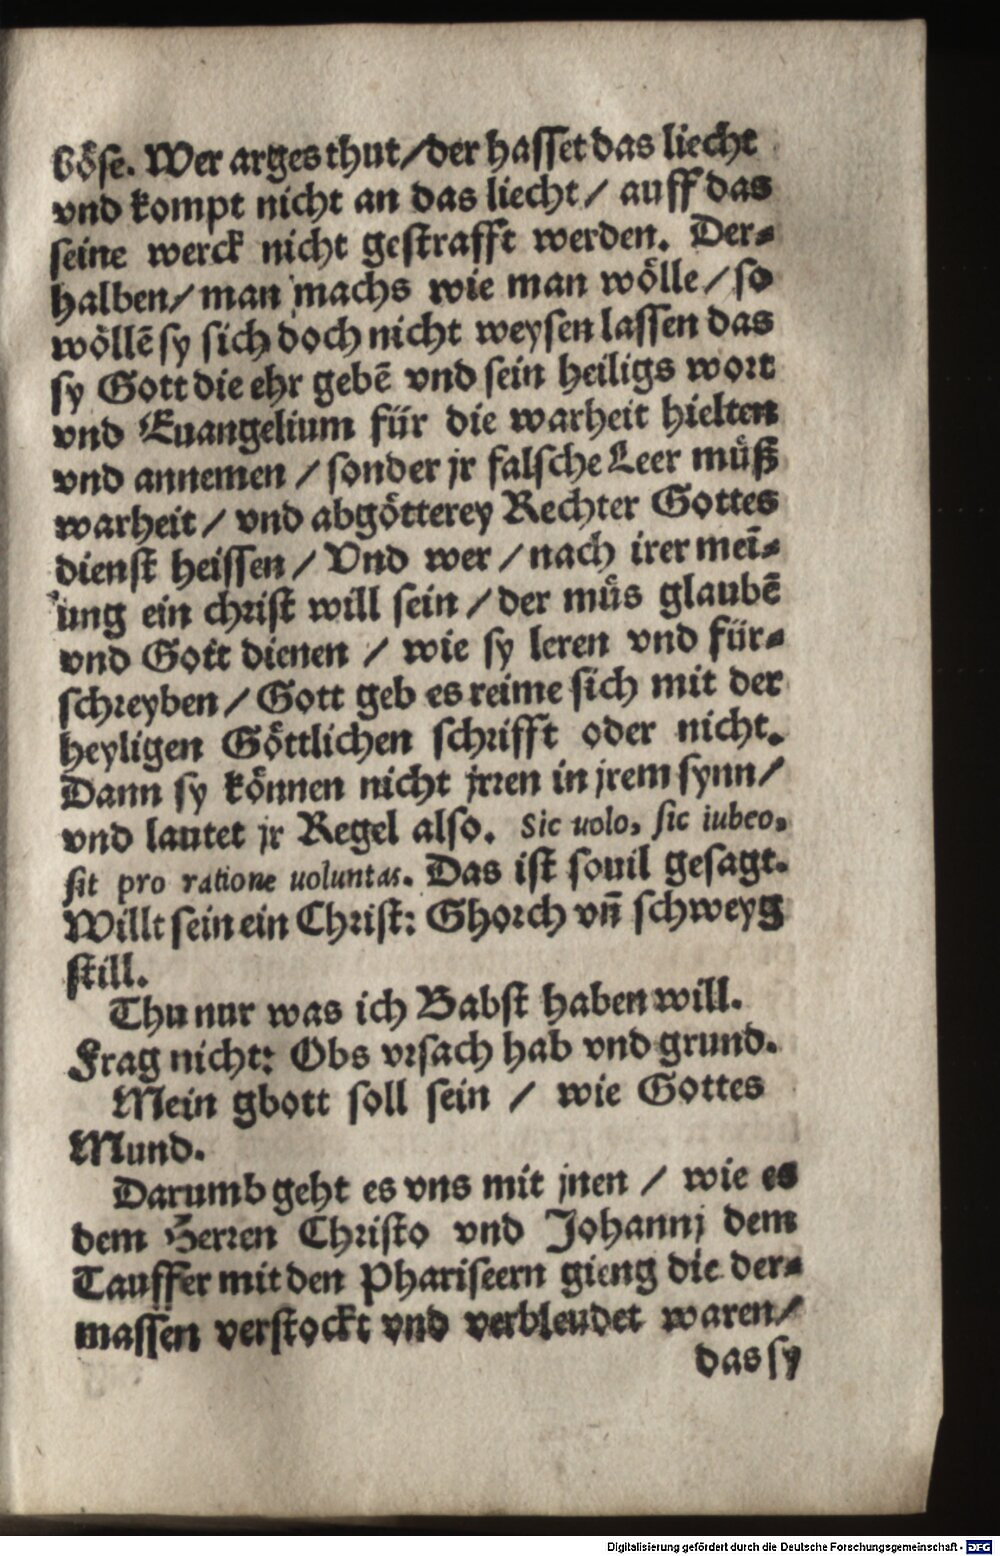 böse. Wer arges thut/der hasset das liecht
vnd kompt nicht an das liecht/ auff das
seine werck nicht gestrafft werden. Der-
halben/ man machs wie man wölle/so
wöllē sy sich doch nicht weysen lassen das
sy Gott die ehr gebē vnd sein heiligs wort
vnd Euangelium für die warheit hielten
vnd annemen / sonder jr falsche Leer müß
warheit/ vnd abgötterey Rechter Gottes
dienst heissen/ Vnd wer / nach irer mei-
ung ein christ will sein / der müs glaubē
vnd Gott dienen / wie sy leren vnd für-
schreyben/ Gott geb es reime sich mit der
heyligen Göttlichen schrifft oder nicht.
Dann sy können nicht jrren in jrem synn/
vnd lautet jr Regel also. Sic uolo, sic iubeo,
sit pro ratione uoluntas. Das ist souil gesagt.
Willt sein ein Christ: Ghorch vn̄ schweyg
still.
Thu nur was ich Babst haben will.
Frag nicht: Obs vrsach hab vnd grund.
Mein gbott soll sein / wie Gottes
Mund.
Darumb geht es vns mit jnen / wie es
dem Herren Christo vnd Johannj dem
Tauffer mit den Phariseern gieng die der-
massen verstockt vnd verblendet waren/
das sy
Digitalisierung gefördert durch die Deutsche Forschungsgemeinschaft - DFG